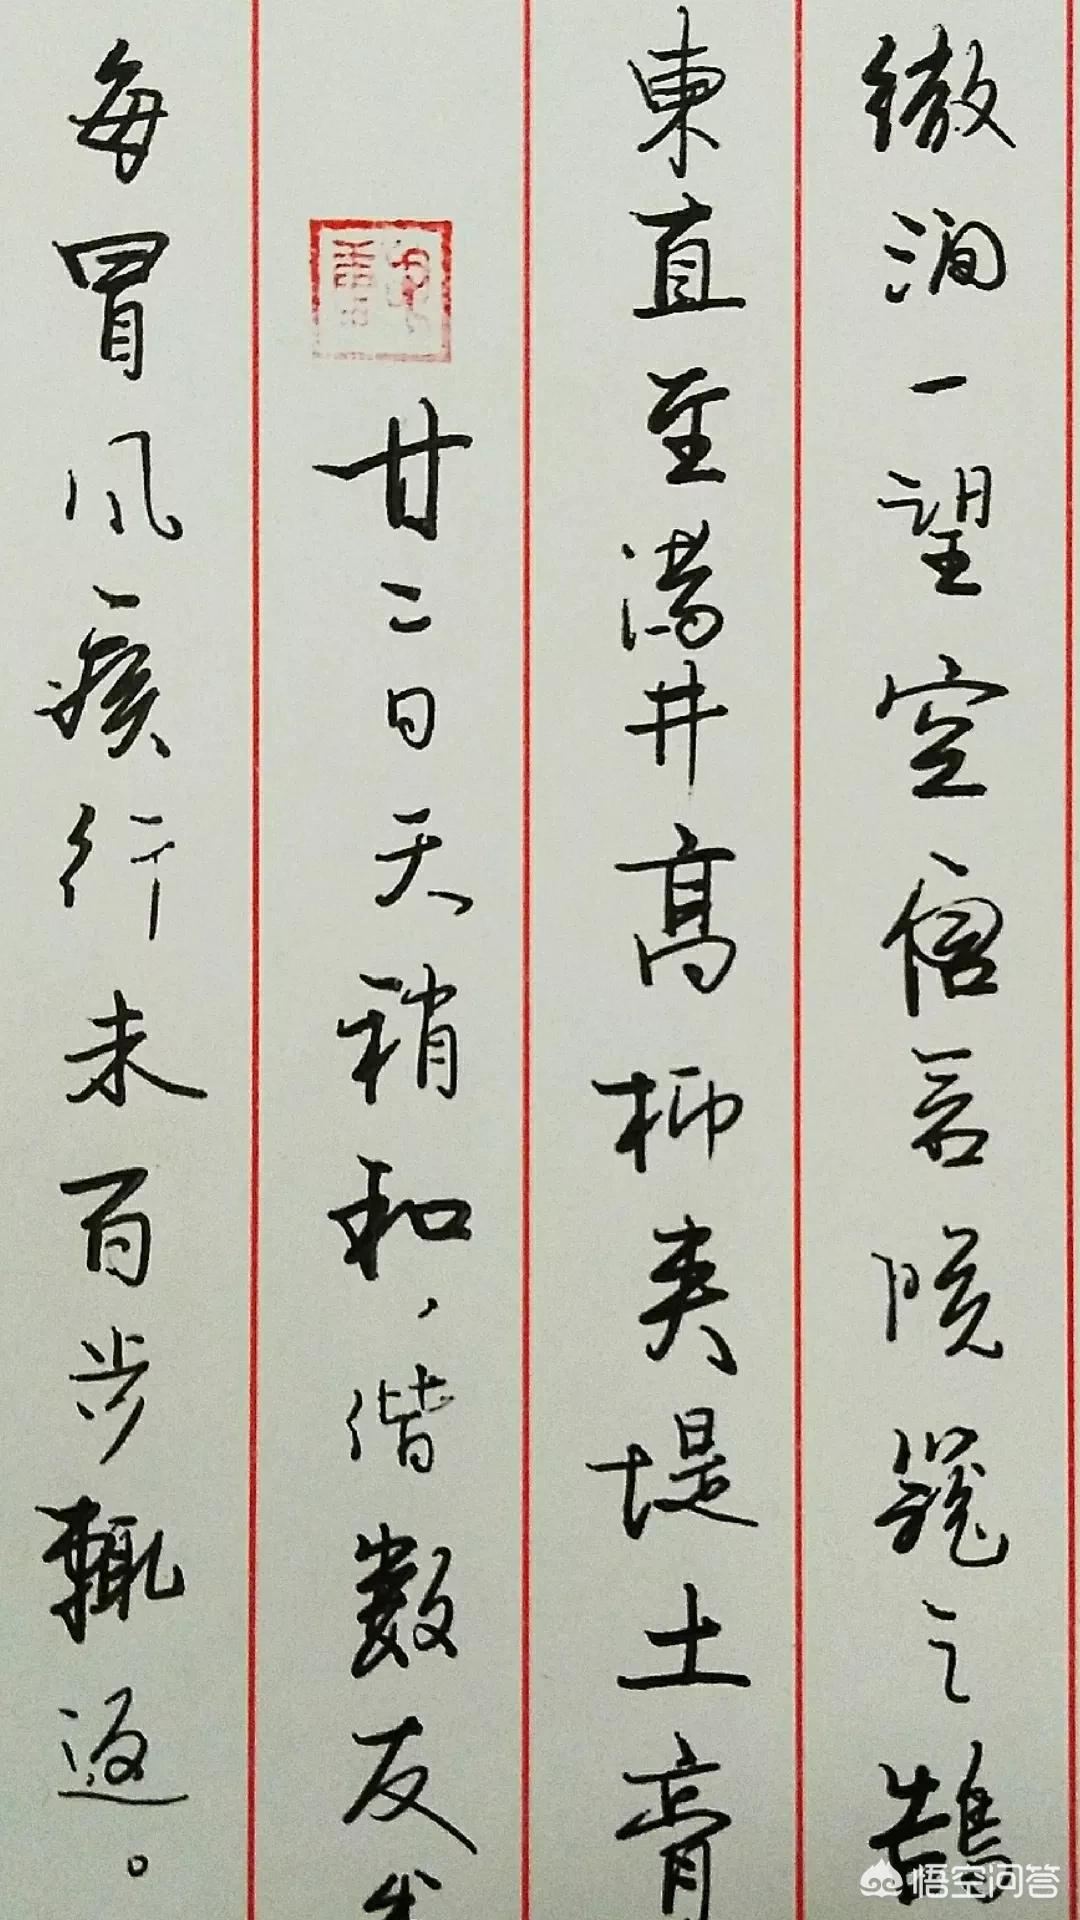 每冒风疾行未百步輒返。
廿二日天稍和，偕數友出
東直至满井高柳夹堤土膏
微润一望空阔若脱籠之鵠
悟空问答